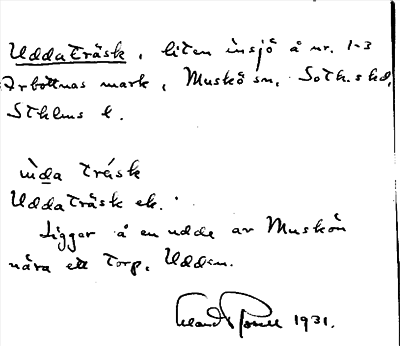 Uddaträsk, liten insjö å nr. 1-3
Arbottnas mark, Muskö sn, Soth. skd,
Sthlms l.
ùda trásk
Uddaträsk ek.
Ligger å en udde av Muskön
nära ett torp, Udden.
1931.